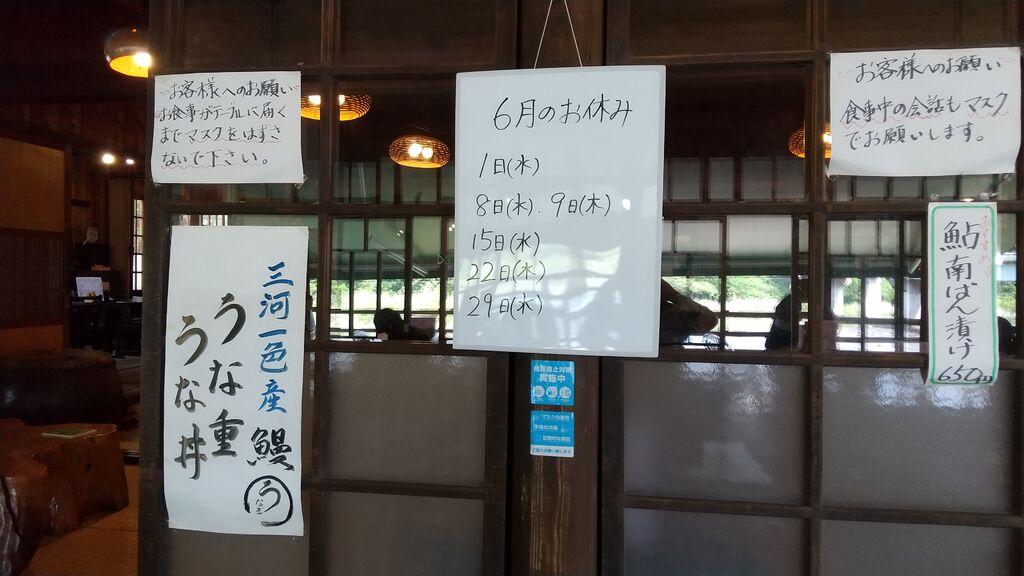 お客様へのお願い
お食事がテーブルに届く
までマスクをはずさ
ないで下さい。
三河一色産 鰻
うなぎ
うな重
うな丼
6月のお休み
1日(水)
8日(水). 9日(木)
15日(水)
22日(水)
29日(水)
実施中
お客様へのお願い
食事中の会話もマスク
でお願いします。
鮎南ばん漬け
650円